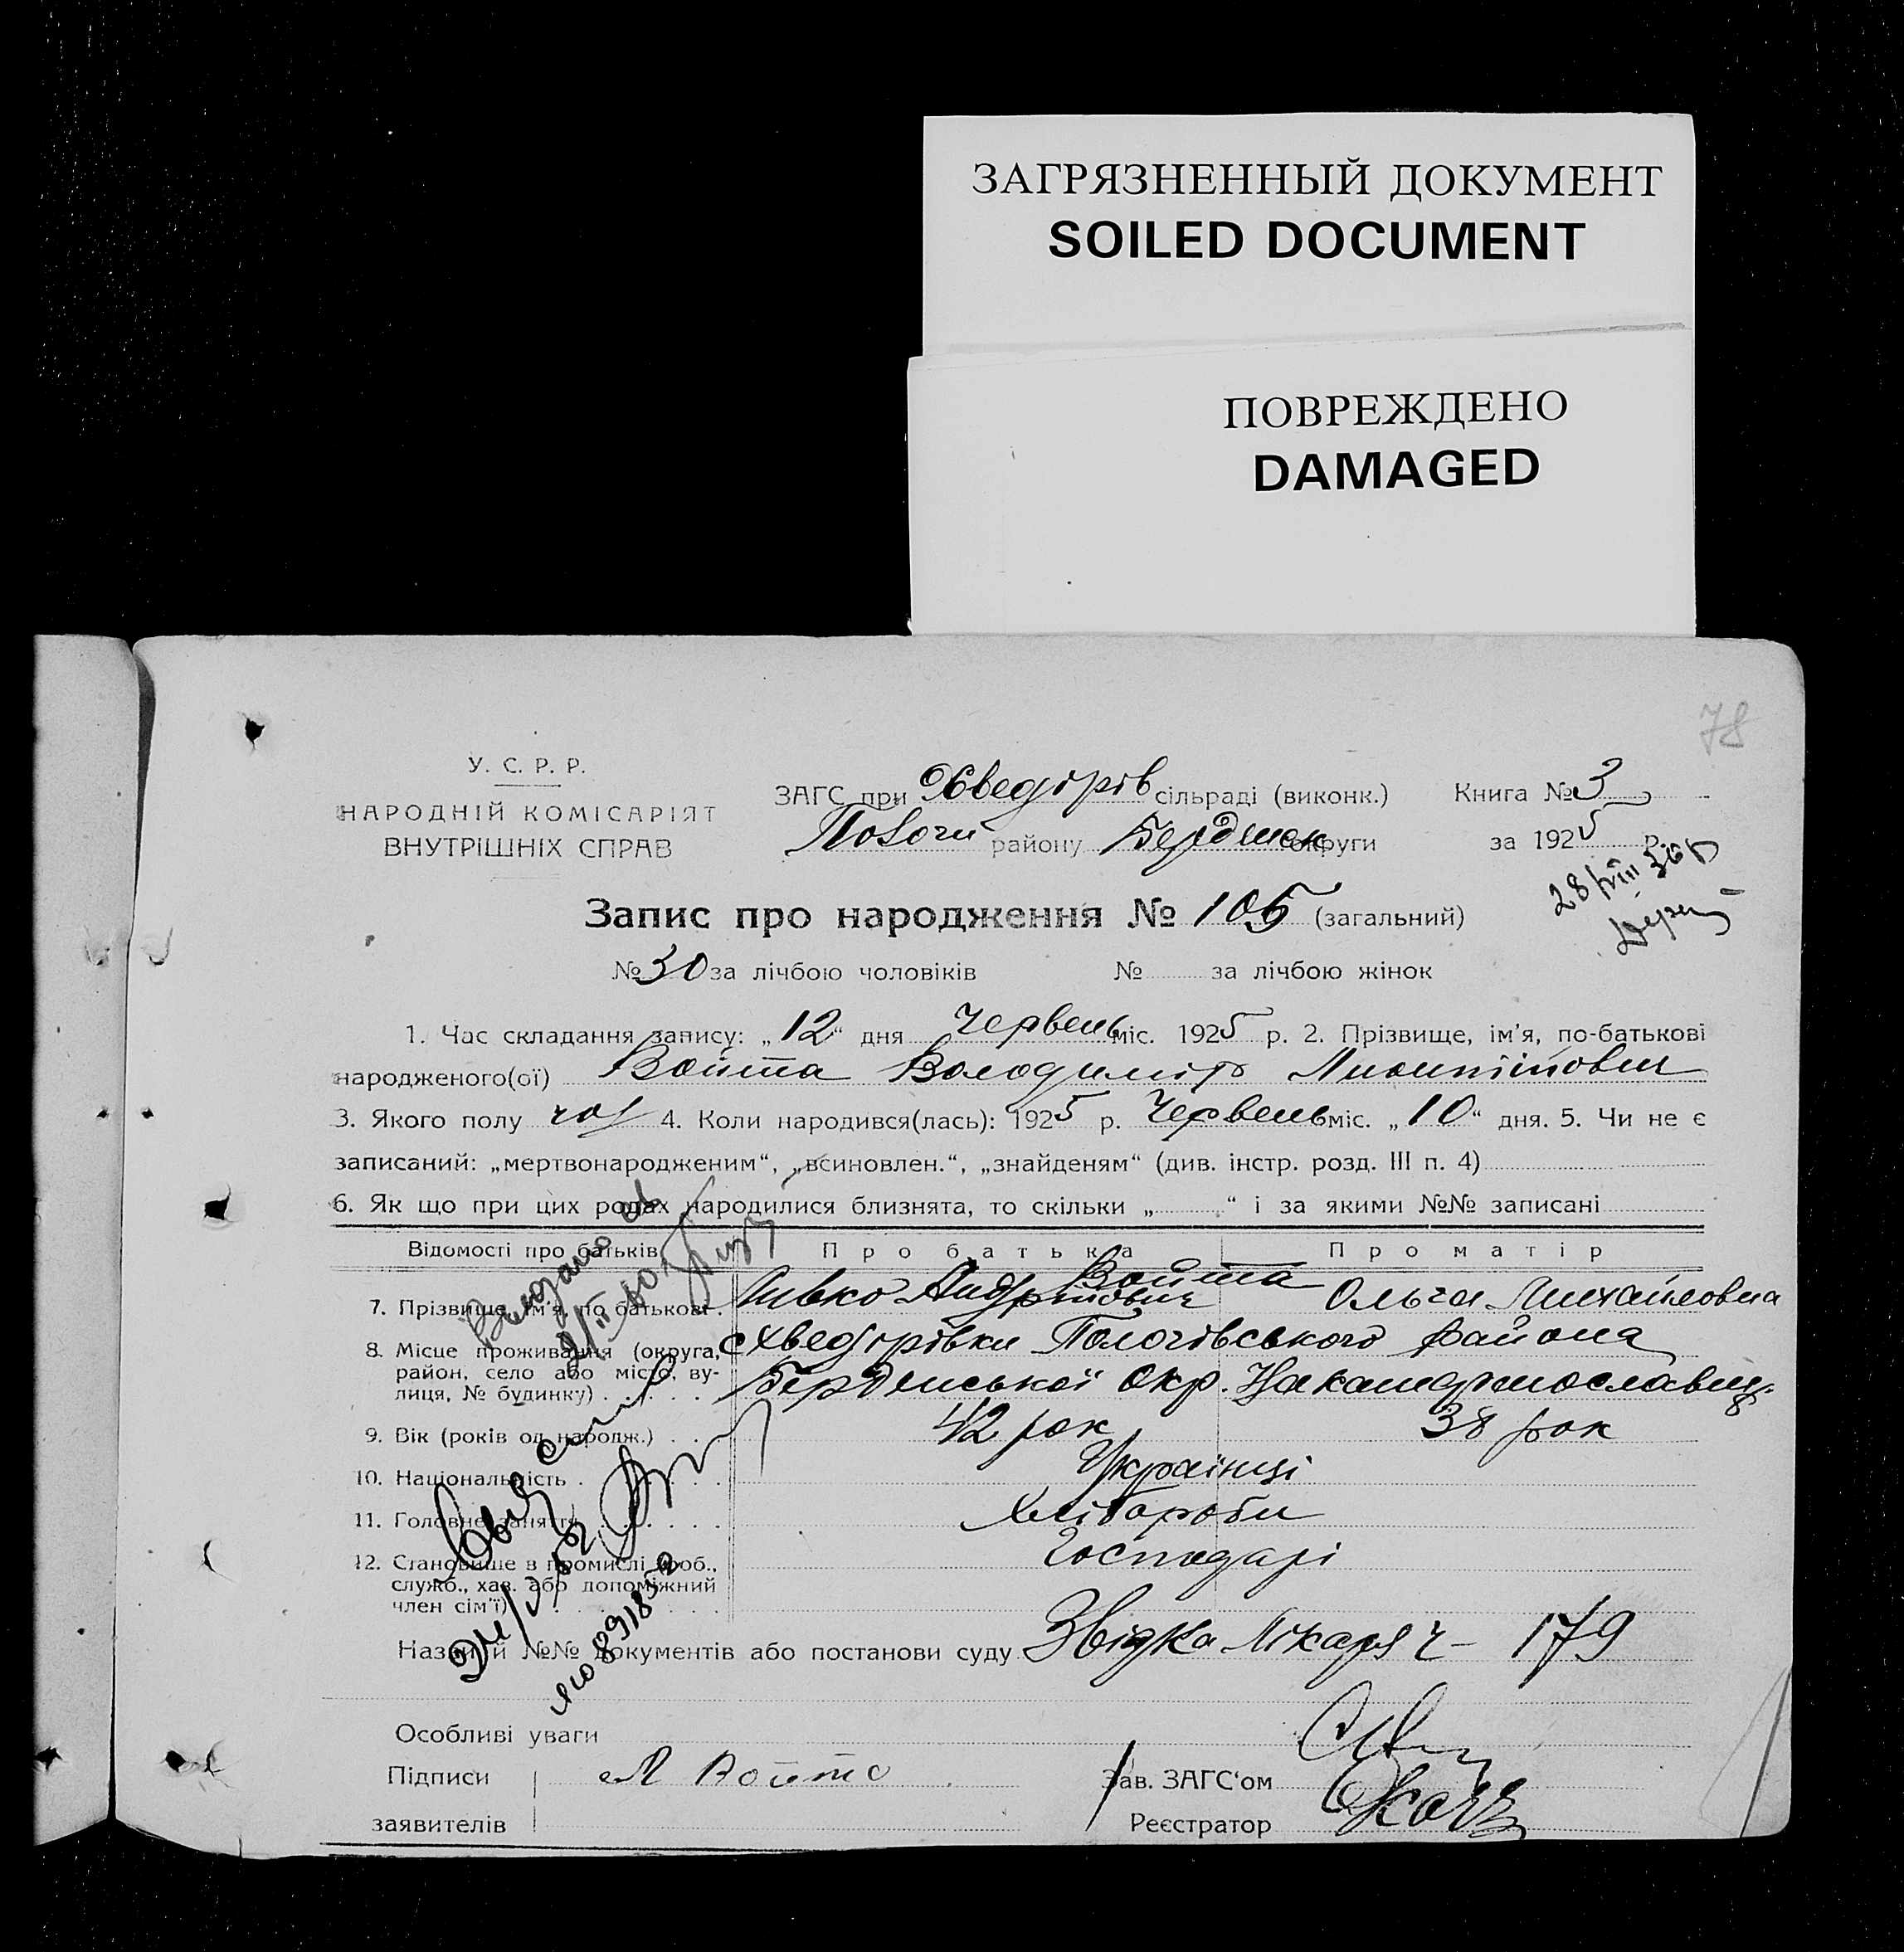 ЗАГРЯЗНЕННЫЙ ДОКУМЕНТ
SOILED DOCUMENT
ПОВРЕЖДЕНО
DAMAGED
78
У. С. Р. Р.
НАРОДНІЙ КОМІСАРІЯТ
ВНУТРІШНІХ СПРАВ
ЗАГС при Хведорів сільраді (виконк.) Книга № 3
району Бердянск округи за 1925 р.
Запис про народження № 105 (загальний)
№ 30 за лічбою чоловіків № за лічбою жінок
1. Час складання запису: „12“ дня Червень міс. 1925 р. 2. Прізвище, ім'я, по-батькові
народженого(ої) Войта Володимір
3. Якого полу чол 4. Коли народився(лась): 1925 р. Червень міс. „10“ дня. 5. Чи не є
записаний: „мертвонародженим“, „всиновлен.“, „знайденям“ (див. інстр. розд. III п. 4)
6. Як що при цих родах народилися близнята, то скільки „ “ і за якими №№ записані
Відомості про батьків Про батька Про матір
7. Прізвище, ім'я, по батькові Войта Ольга Михайловна
8. Місце проживання (округа, район, село або місто, вулиця, № будинку) с Хведорівки Пологівського района
Бердянської Окр.
9. Вік (років од народж.) 42 рок 38 рок
10. Національність Українці
11. Головне заняття Хлібароби
12. Становище в промислі (роб., служб., хаз. або допоміжний член сім'ї) Господарі
Назви й №№ документів або постанови суду Звідка Лікаря ч – 179
Особливі уваги
Підписи Войта
Зав. ЗАГС'ом
заявителів
Реєстратор